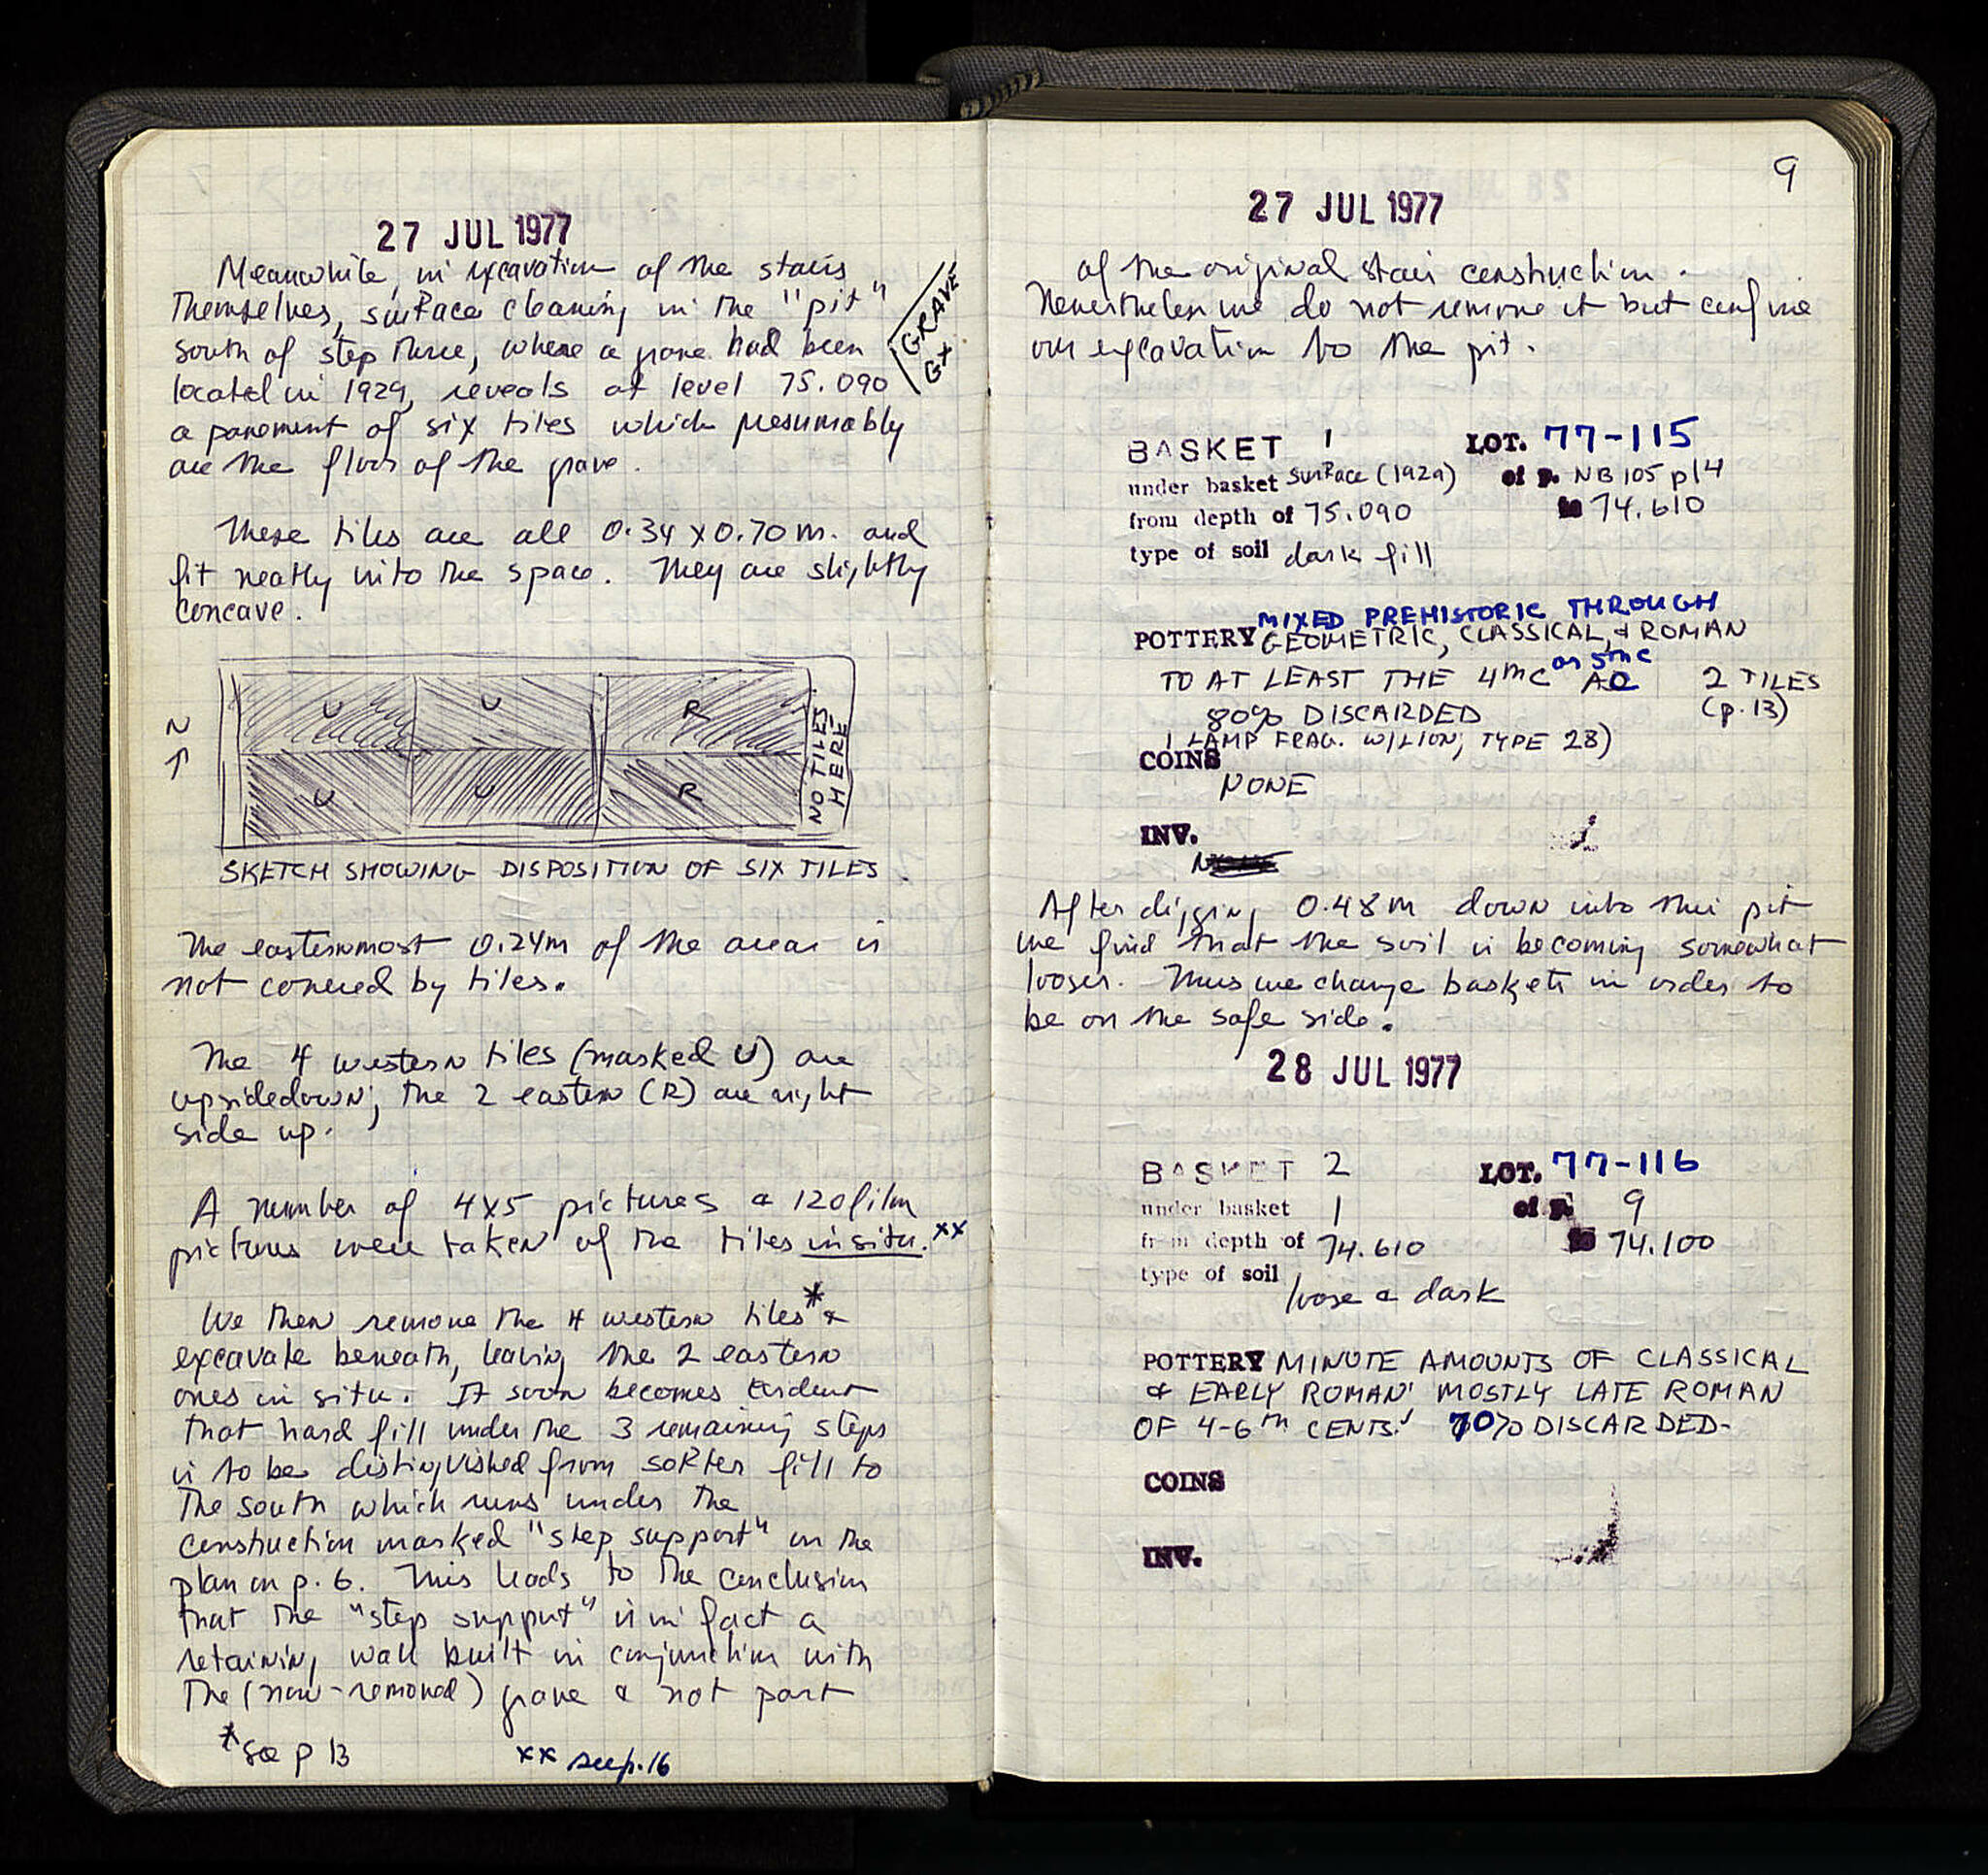 27 JUL 1977
Meanwhile, in excavation of the stairs
themselves, surface cleaning in the "pit"
south of step three, where a grave had been
located in 1929, reveals at level 75.090
a pavement of six tiles which presumably
are the floor of the grave.
GRAVE
GX
These tiles are all 0.34 x 0.70 m. and
fit neatly into the space. They are slightly
concave.
N
↑
U U R
U U R
NO TILES
HERE
SKETCH SHOWING DISPOSITION OF SIX TILES.
The easternmost 0.24m of the area is
not covered by tiles.
The 4 western tiles (marked U) are
upsidedown; the 2 eastern (R) are right
side up.
A number of 4x5 pictures & 120 film
pictures were taken of the tiles in situ.xx
We then remove the 4 western tiles* &
excavate beneath, leaving the 2 eastern
ones in situ. It soon becomes evident
that hard fill under the 3 remaining steps
is to be distinguished from softer fill to
the south which runs under the
construction marked "step support" on the
plan on p. 6. This leads to the conclusion
that the "step support" is in fact a
retaining wall built in conjunction with
the (now-removed) grave & not part
*see p 13
xx see p. 16
9
27 JUL 1977
of the original stair construction.
Nevertheless we do not remove it but confine
our excavation to the pit.
BASKET 1 LOT. 77-115
under basket surface (1929) of p. NB 105 p14
from depth of 75.090 to 74.610
type of soil dark fill
MIXED PREHISTORIC THROUGH
POTTERY GEOMETRIC, CLASSICAL, & ROMAN
TO AT LEAST THE 4TH C or 5TH C AD 2 TILES
80% DISCARDED (p. 13)
1 LAMP FRAG. W/LION, TYPE 28)
COINS
NONE
INV.
After digging 0.48m down into this pit
we find that the soil is becoming somewhat
looser. Thus we change baskets in order to
be on the safe side.
28 JUL 1977
BASKET 2 LOT. 77-116
under basket 1 of p. 9
from depth of 74.610 to 74.100
type of soil loose & dark
POTTERY MINUTE AMOUNTS OF CLASSICAL
& EARLY ROMAN; MOSTLY LATE ROMAN
OF 4-6TH CENTS. 70% DISCARDED-
COINS
INV.